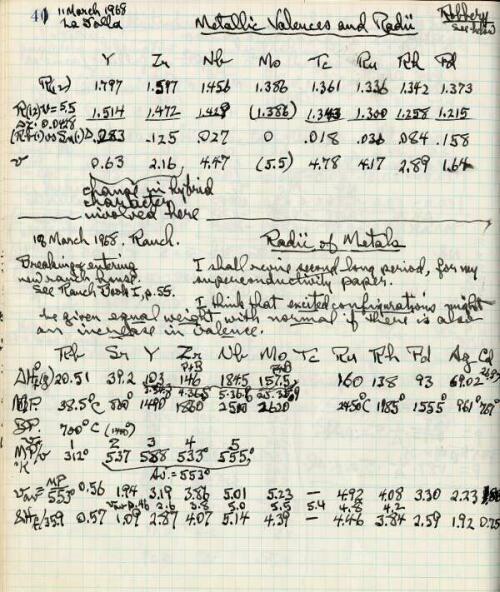 41
11 March 1968
La Jolla
Metallic Valences and Radii
Robbery
See below
Y Zr Nb Mo Tc Ru Rh Pd
R(12) 1.797 1.597 1.456 1.386 1.361 1.336 1.342 1.373
R(12) v=5.5 1.514 1.472 1.429 (1.386) 1.343 1.300 1.258 1.215
Δz: 0.0428
Δ .283 .125 .027 0 .018 .036 .084 .158
v 0.63 2.16 4.47 (5.5) 4.78 4.17 2.89 1.64
change in hybrid
character
involved here
18 March 1968. Ranch.
Radii of Metals
Breaking & entering
new ranch house.
See Ranch Book I, p. 55.
I shall revise second long period, for my
superconductivity paper.
I think that excited configurations might
be given equal weight with normal if there is also
an increase in valence.
Rb Sr Y Zr Nb Mo Tc Ru Rh Pd Ag Cd
P+B P+B
20.51 39.2 103 146 184.5 157.5 160 138 93 69.02
M.P. 38.5°C 800° 1490 1860 2500 2620 2450°C 1985° 1555° 961°
B.P. 700°C
v= 1 2 3 4 5
MP/v 312° 537 588 533° 555°
°K
Av. = 553°
v = MP/553° 0.56 1.94 3.19 3.86 5.01 5.23 — 4.92 4.08 3.30 2.23
2.6 3.8 5.0 5.5 5.4 4.8 4.2
ΔHf/35.9 0.57 1.09 2.87 4.07 5.14 4.39 — 4.46 3.84 2.59 1.92 0.75